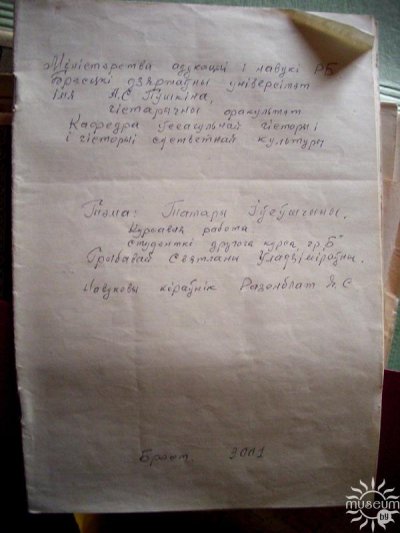 Міністэрства адукацыі і навукі РБ
Брэсцкі дзяржаўны універсітэт
імя А.С Пушкіна,
гістарычны факультэт
Кафедра ўсеагульнай гісторыі
і гісторыі сусветнай культуры
Тэма: Татары Іўеўшчыны.
Курсавая работа
студэнткі другога курса гр. "Б"
Грыбавай Святланы Уладзіміраўны.
Навуковы кіраўнік Разенблат Я. С
Брэст. 2001
museum
by